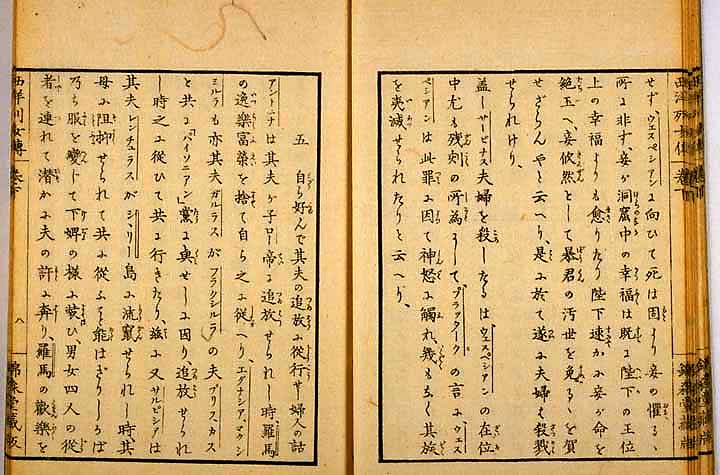 せず、ウェスペシアンに向ひて死は固より妾の懼るゝ
所に非す、妾が洞窟中の幸福は既に陛下の王位
上の幸福よりも愈りたり陛下速かに妾が命を
絶玉へ、妾攸然として暴君の汚世を免るゝを賀
せざらんやと云へり、是に於て遂に夫婦も殺戮
せられけり、
蓋しサービーナス夫婦を殺したるはウェスペシアンの在位
中尤も残刻の所為にして、プラッタークの言にウェス
ペシアンは此罪に因て神怒に觸れ、幾もなく其族
を夷滅せられたりと云へり、
五 自ら好んで其夫の追放に從行せし婦人の話
アントニナは其夫が子ロー帝に追放せられし時羅馬
の逸樂富榮を捨て自ら之に從へり、エグナシア、マクシ
ミルラも亦其夫ガルラスがフラクシルラの夫プリスカス
と共に「パイソニアン」黨に與せしに因り、追放せられ
し時之に從ひて共に行きたり、茲に又サルピシアは
其夫レンチュラスがシヽリー島に流竄せられし時、其
母に阻抑せられて共に從ふこと能はざりしかば
乃ち服を變じて下婢の様に裝ひ、男女四人の從
者を連れて潜かに夫の許に奔り、羅馬の歡樂を
西洋列女傳 巻下
八
錦森堂蔵版